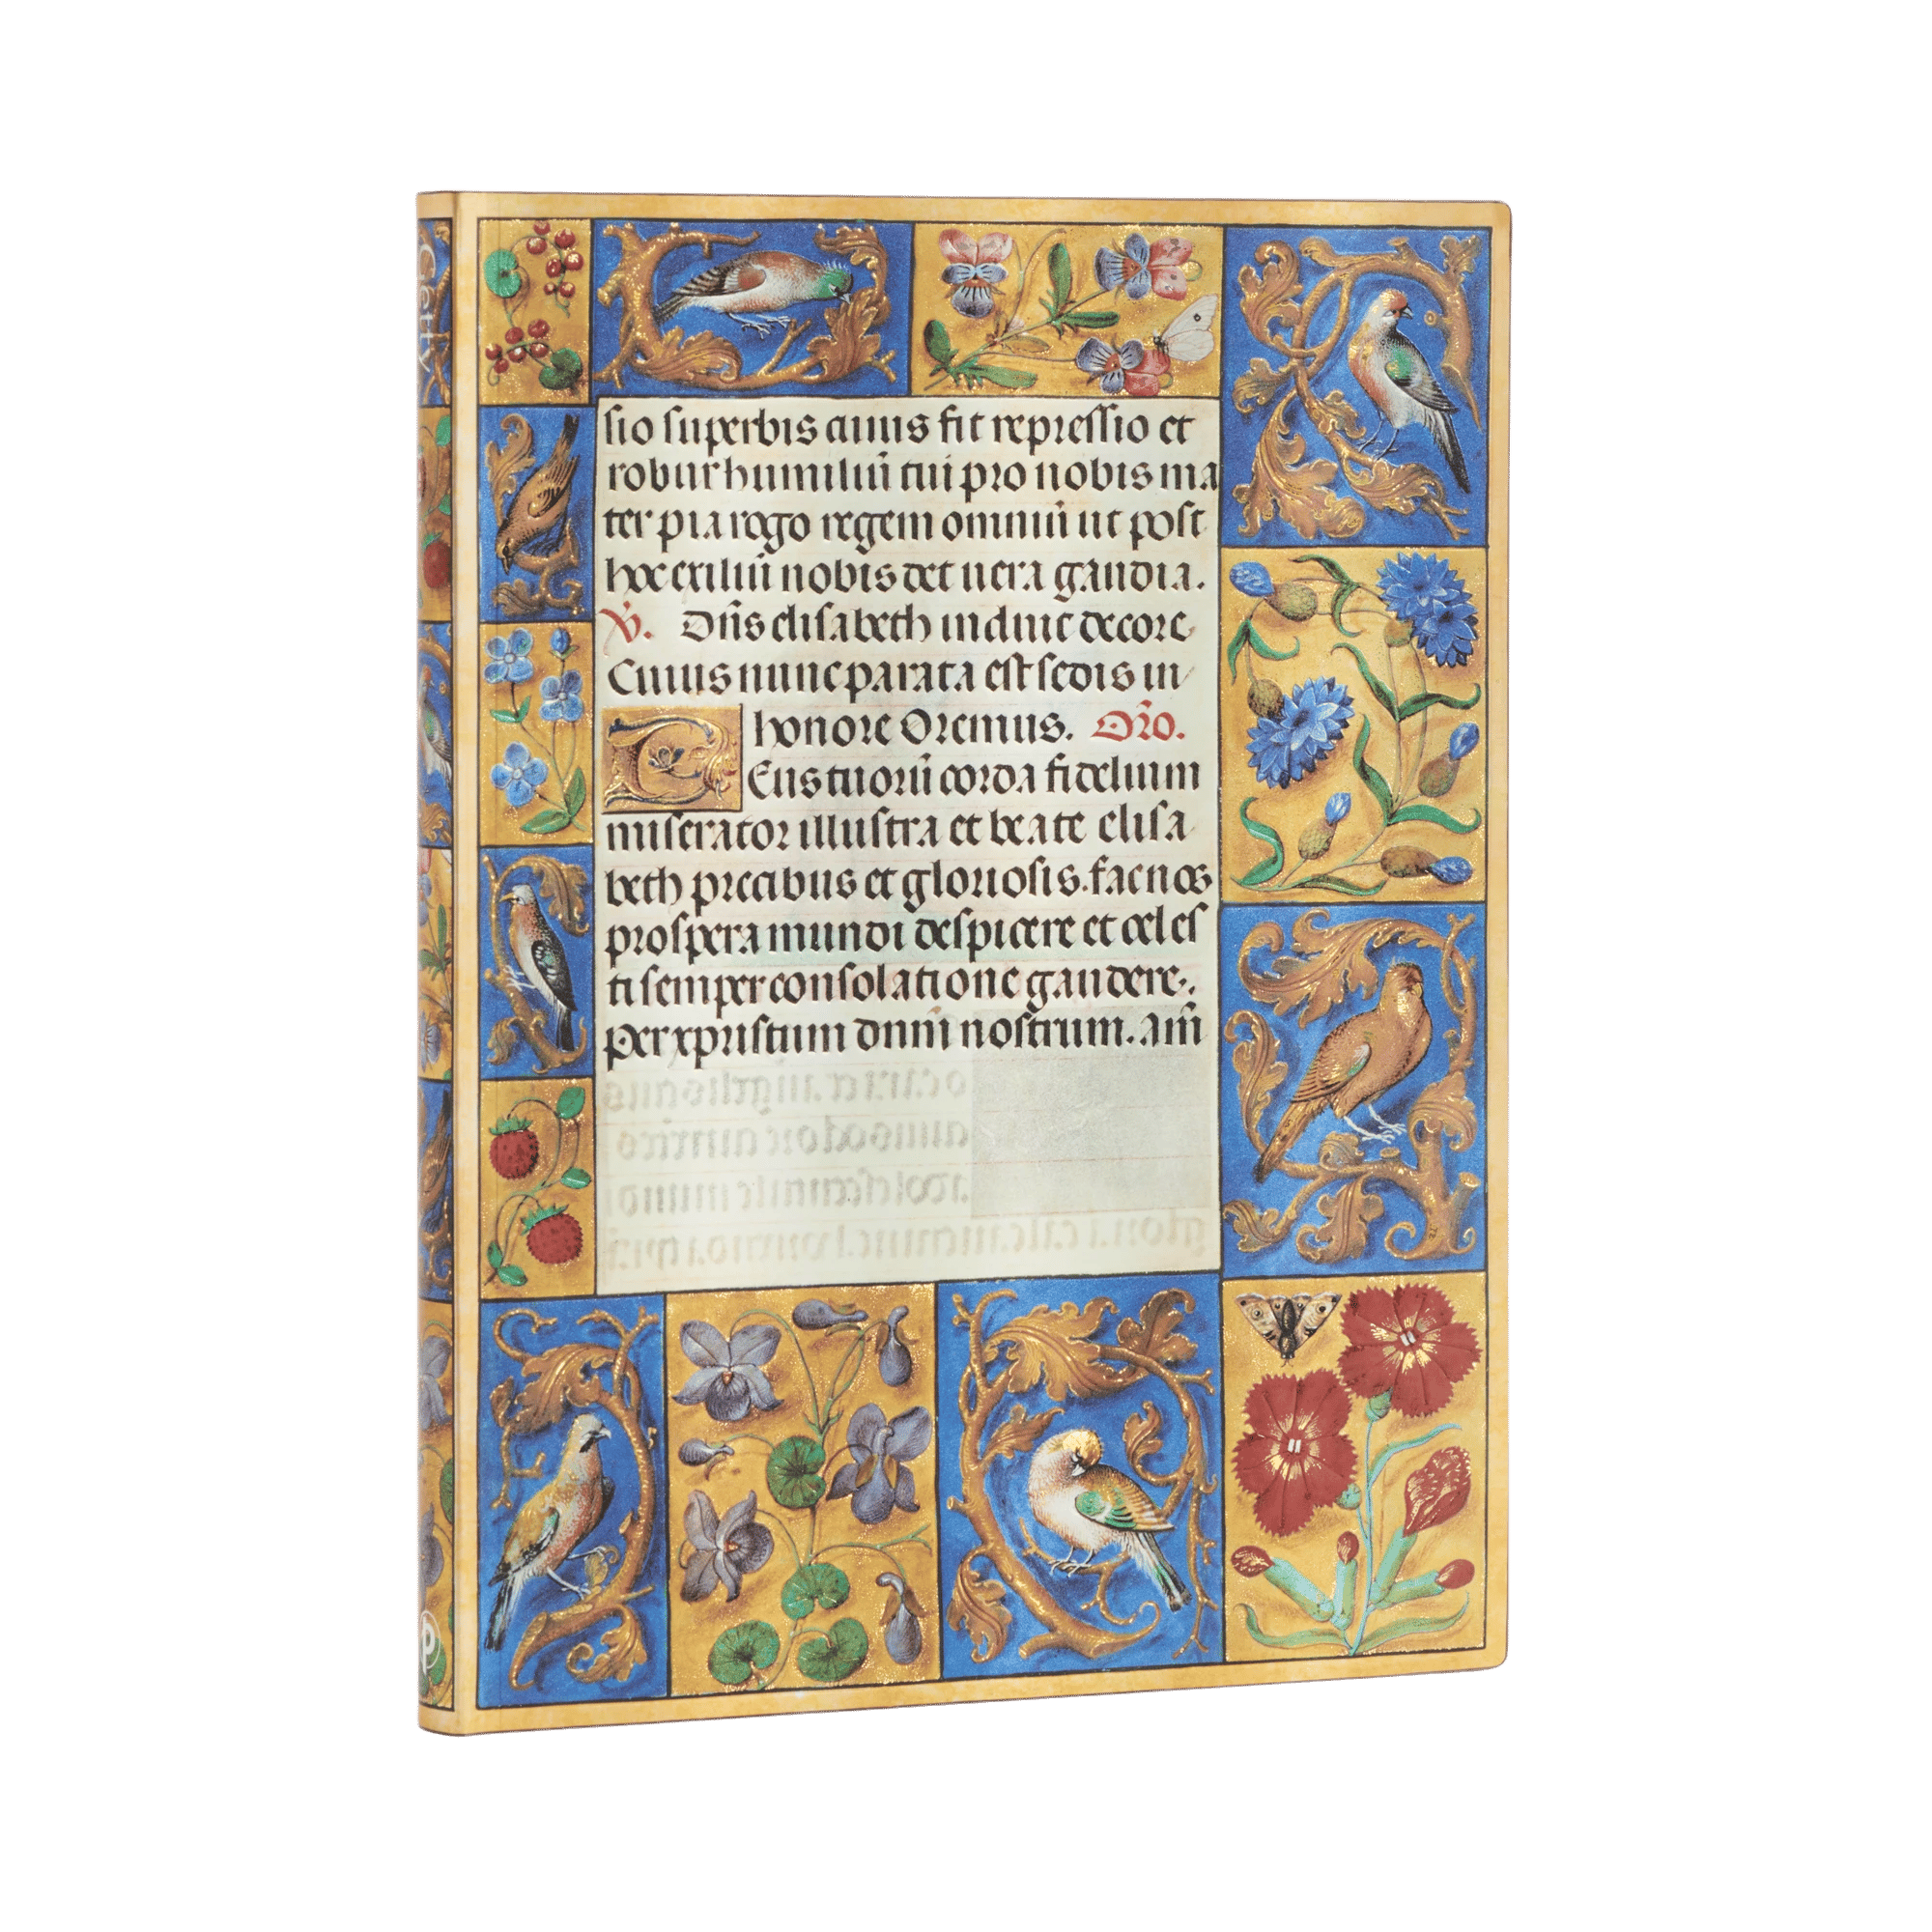 Getty
sio superbis cuius fit repressio et
robur humiliu͂ tui pro nobis ma
ter pia rogo regem omniu͂ ut post
hoc exiliu͂ nobis det uera gaudia.
V̇. Dn͂s elisabeth induit decore
Cuius nunc parata est sedis in
honore Oremus. Or͂o.
Eus tuoru͂ corda fidelium
miserator illustra et beate elisa
beth precibus et gloriosis. fac nos
prospera mundi despicere et celes
ti semper consolatione gaudere.
Per xpristum dnm͂ nostrum. am͂